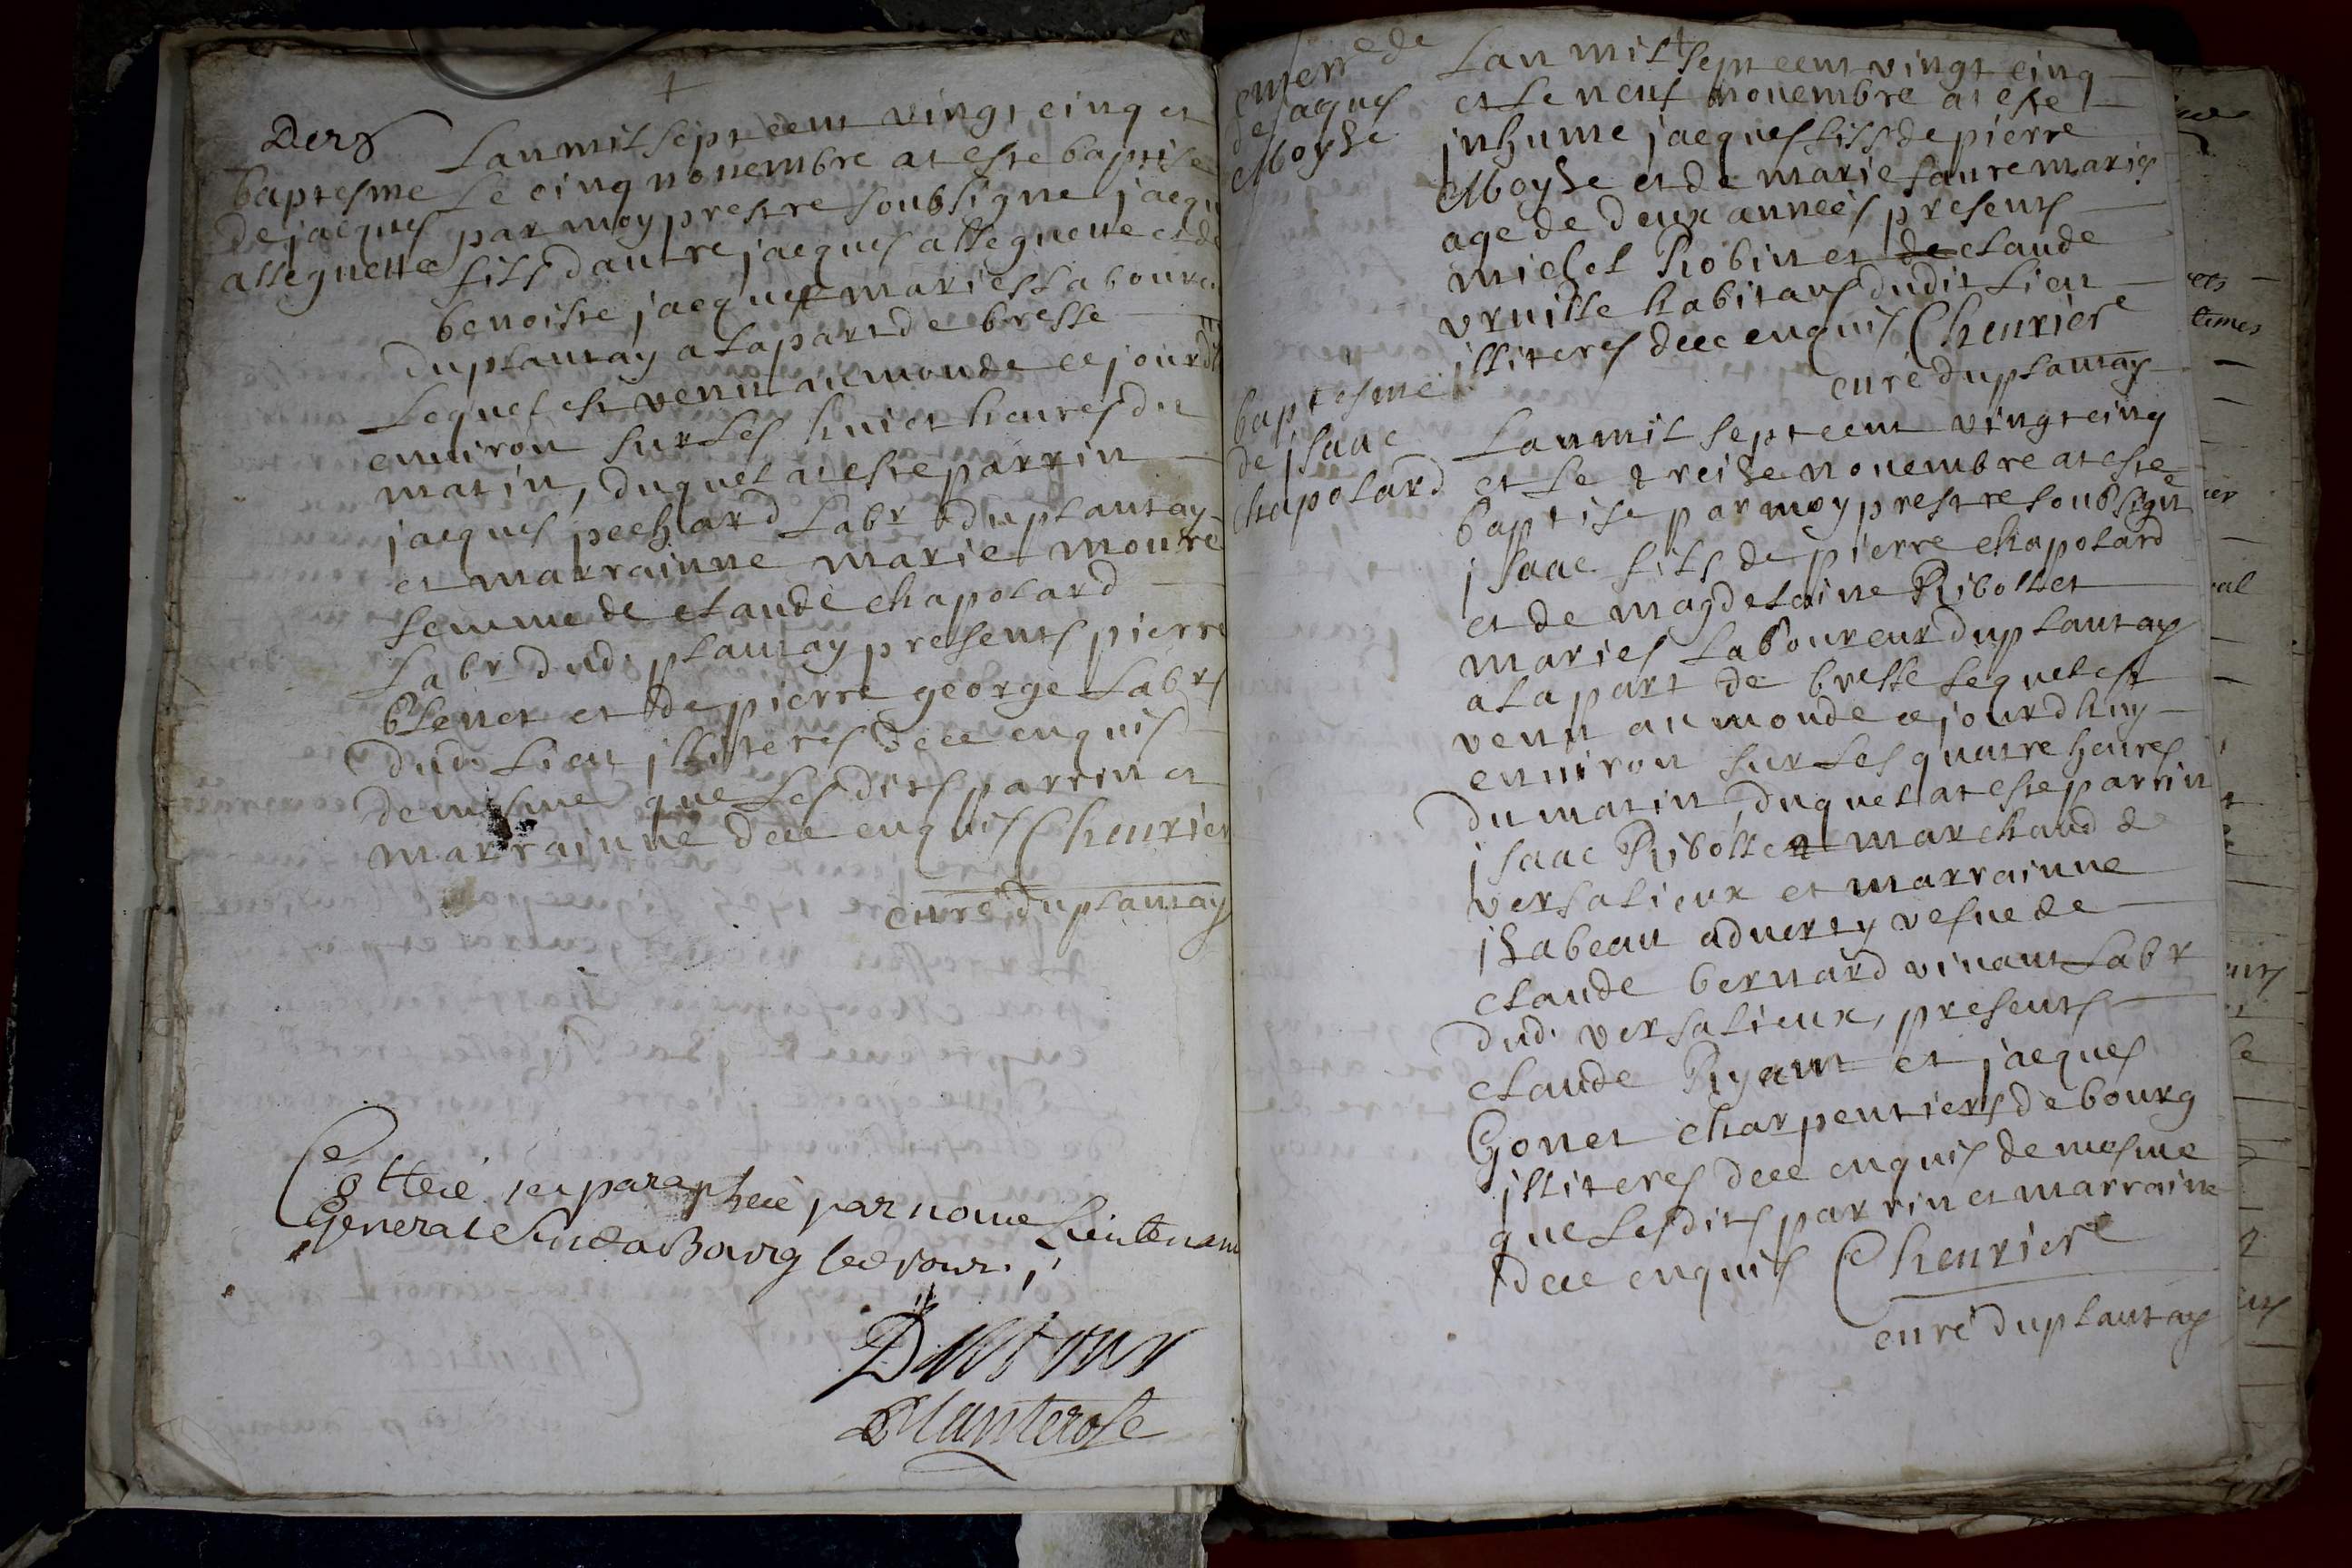 Ders
baptesme
de jacques
alleguette
Lan mil sept cent vingt cinq et
le cinq nouembre at este baptise
par moy prestre soubsigne jacqu
fils dautre jacques alleguette et de
benoiste jacquet maries Laboure
du plantay a la part de bresse
Lequel est venu au monde ce jourd
enuiron sur Les huict heures du
matin, duquel at este parrin
jacques pechard Labr du plantay
et marrainne marie moure
femme de claude chapolard
Labr dud. plantay presents pierre
blenet et de pierre george Labrs
dud. Lieu jlliteres dece enquis
de mesme que Lesdits parrin et
marrainne dece enquis Cheurier
curé du plantay
Cotteé et parapheé par nous Lieutenan
General a Bourg led jour
emt de
de jaques
Moyse
Lan mil sept cent vingt cinq
et le neuf nouembre at este
jnhume jacques fils de pierre
Moyse et de marie faure maries
age de deux anneés presents
michel Robin et de claude
vruille habitans dudit Lieu
jlliteres dece enquis Cheurier
curé du plantay
baptesme
de jsaac
chapolard
Lan mil sept cent vingt cinq
et le treise nouembre at este
baptise par moy prestre soubsigné
jsaac fils de pierre chapolard
et de magdelaine Ribollet
maries Laboureur du plantay
a la part de bresse lequel est
venu au monde ce jourdhuy
enuiron sur Les quatre heures
du matin, duquel at este parrin
jsaac Ribollet marchand de
versalieux et marrainne
jsabeau aduerty vefue de
claude bernard viuant Labr
dud. versalieux, presents
claude Ryant et jacques
Gonet charpentiers de bourg
jlliteres dece enquis de mesme
que Lesdits parrin et marraine
dece enquis Cheurier
curé du plantay